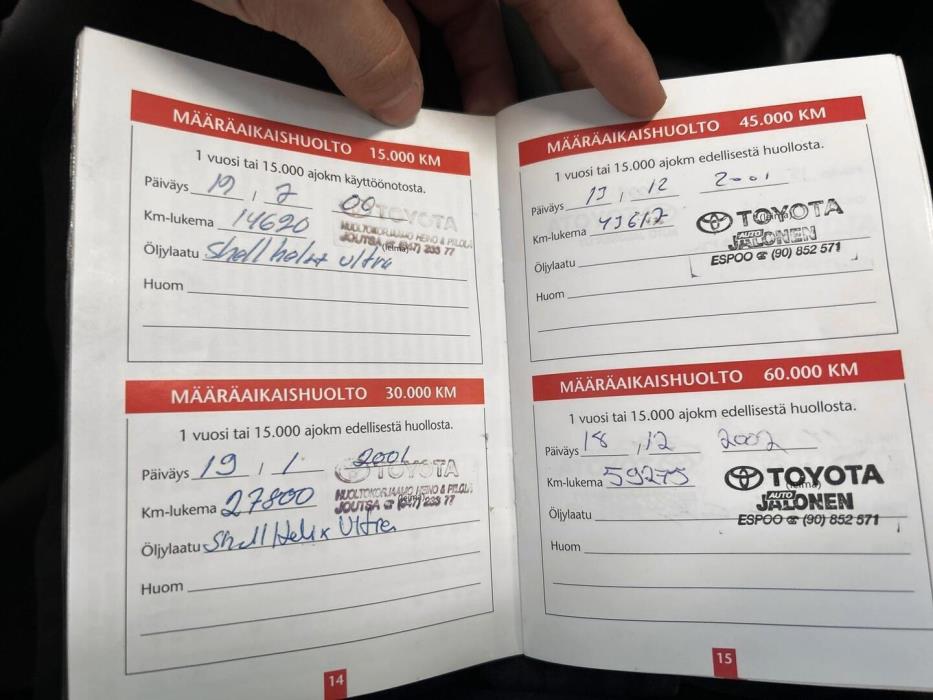 MÄÄRÄAIKAISHUOLTO 15.000 KM
1 vuosi tai 15.000 ajokm käyttöönotosta.
Päiväys 19, 7 00
TOYOTA
Km-lukema 14620
HUOLTOKORJAAMO HEINO & PILOLA
JOUTSA ☎ (947) 233 77
(leima)
Öljylaatu Shell helix ultra
Huom
MÄÄRÄAIKAISHUOLTO 30.000 KM
1 vuosi tai 15.000 ajokm edellisestä huollosta.
Päiväys 19, 1 2001
TOYOTA
Km-lukema 27800
HUOLTOKORJAAMO HEINO & PILOLA
JOUTSA ☎ (947) 233 77
(leima)
Öljylaatu Shell Helix Ultra
Huom
14
MÄÄRÄAIKAISHUOLTO 45.000 KM
1 vuosi tai 15.000 ajokm edellisestä huollosta.
Päiväys 13, 12 2001
TOYOTA
(leima)
Km-lukema 43617
AUTO JALONEN
ESPOO ☎ (90) 852 571
Öljylaatu
Huom
MÄÄRÄAIKAISHUOLTO 60.000 KM
1 vuosi tai 15.000 ajokm edellisestä huollosta.
Päiväys 18, 12 2002
TOYOTA
(leima)
Km-lukema 59275
AUTO JALONEN
ESPOO ☎ (90) 852 571
Öljylaatu
Huom
15